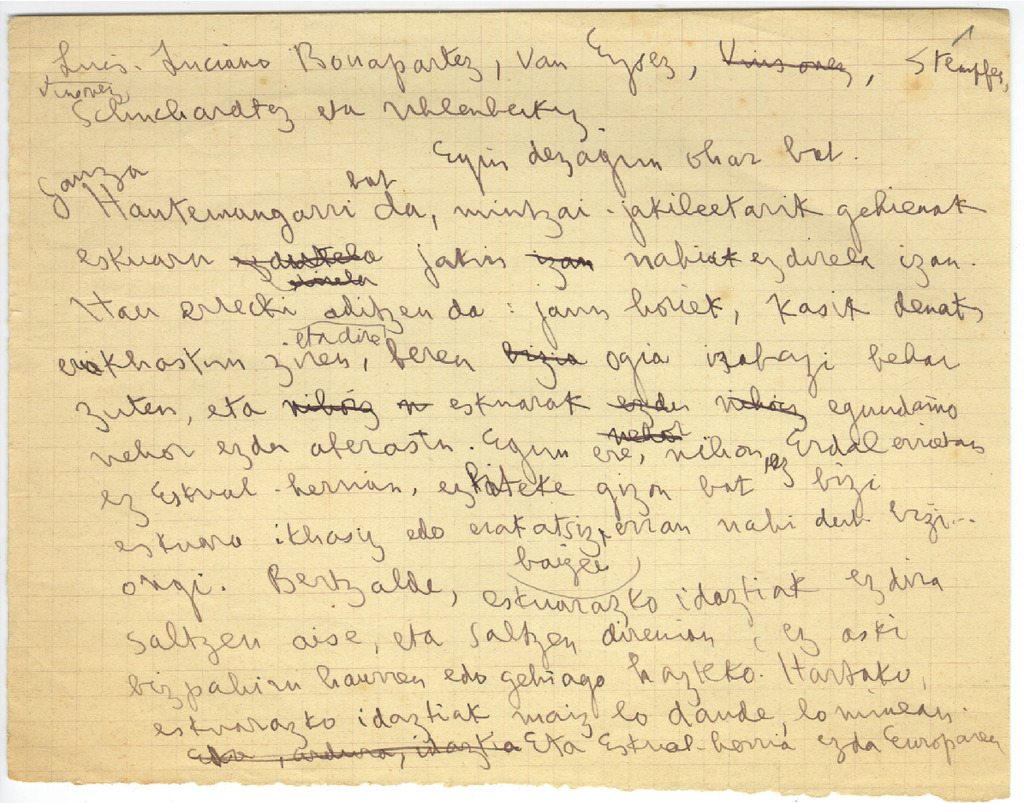 Luis-Luciano Bonapartez, Van Eysez, Vinsonez, Stempfez,
Vinsonez
Schuchardtez eta Uhlenbeckez
Egin dezagun ohar bat.
Gauza bat
Hautemangarri da, mintzai-jakileetarik gehienak
eskuara jakin izan nahi ezdirela izan.
Hau errecki aditzen da: jaun horiek, kasik denak
eta dire
erakhaskun ziren, beren bizia ogia irabazi behar
zuten, eta nihoiz eskuarak ezdu nihoiz egundaino
nehor
nehor ezdu aberastu. Egun ere, nihon, ez Erdal errietan
ez Eskual-herrian, ezditeke gizon bat bizi
eskuara ikhasiz edo erakatsiz, erran nahi dut bizi...
baizen
ongi. Bertzalde, eskuarazko idaztiak ezdira
saltzen aise, eta saltzen direnian, ez aski
bizpahiru haurren edo gehiago hazteko. Hartako,
eskuarazko idaztiak maiz lo daude, lo minean.
Eta, ardura, idazkia Eta Eskual-herria ezda Europaren